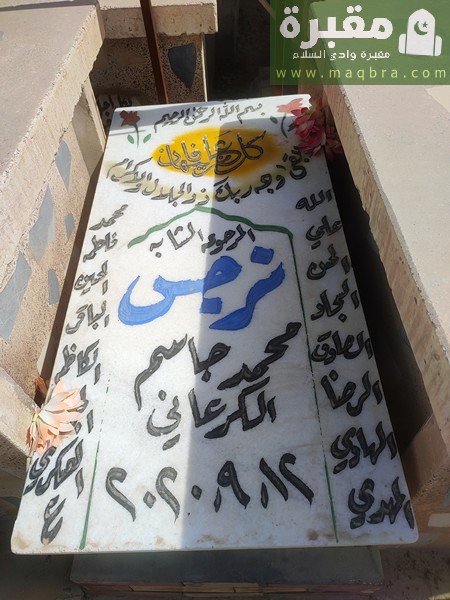 مقبرة
مقبرة وادي السلام
www.maqbra.com
بسم الله الرحمن الرحيم
كل من عليها فان
ويبقى وجه ربك ذو الجلال والاكرام
المرحومة الشابة
نرجس
محمد جاسم
الكرعاني
٢٠٢٠،٩،١٢
الله
علي
الحسن
السجاد
الصادق
الرضا
الهادي
المهدي
محمد
فاطمة
الحسين
الباقر
الكاظم
العسكري
ع